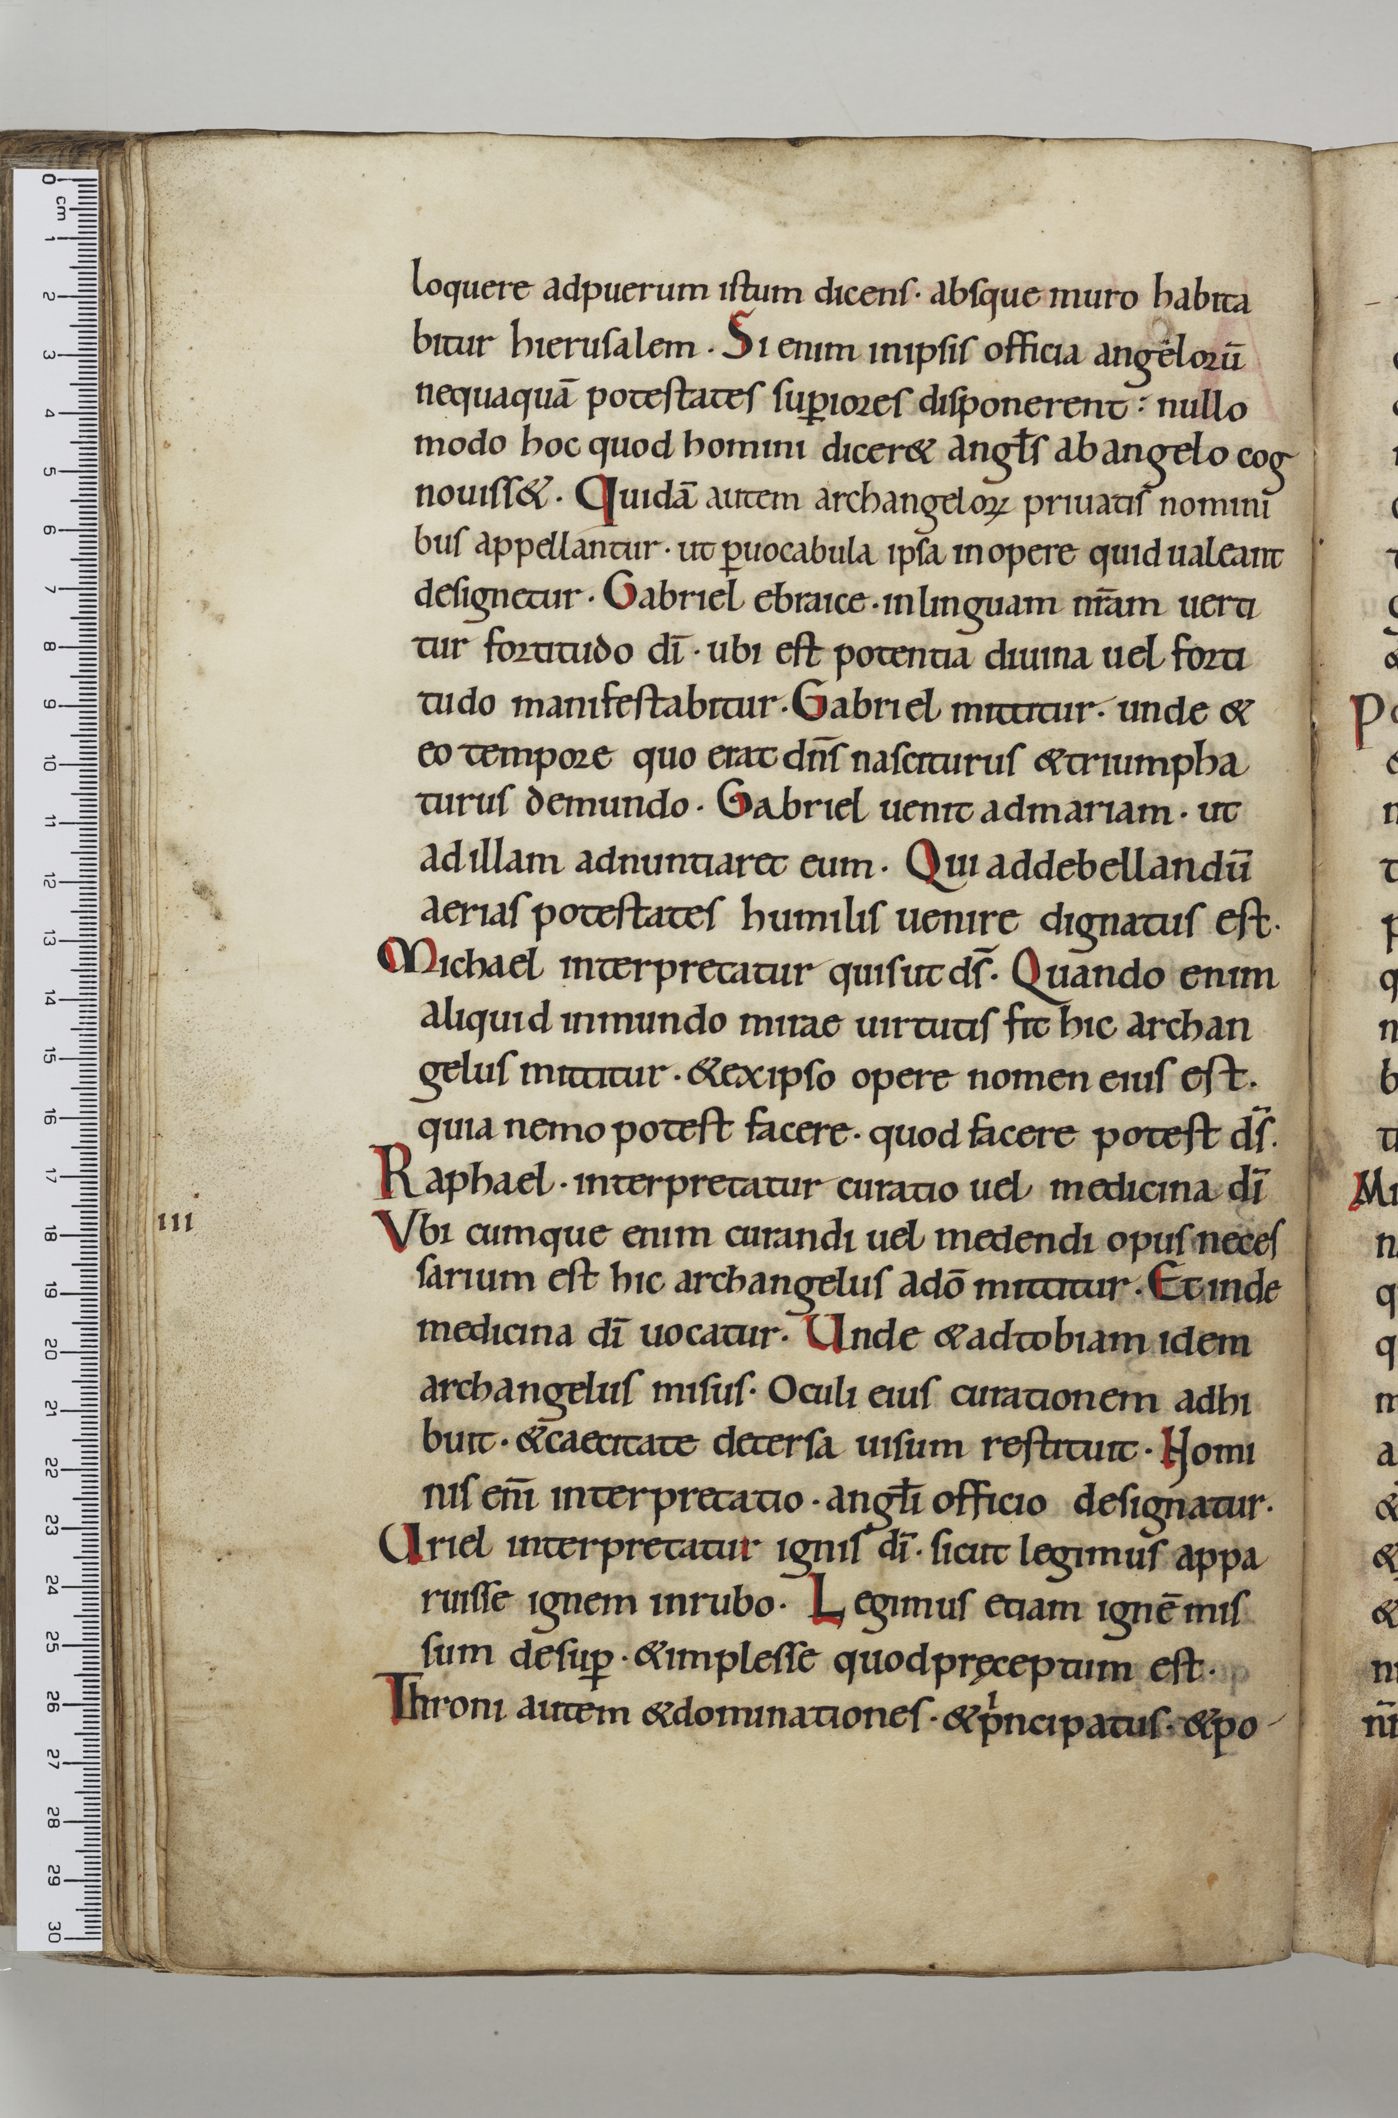 loquere adpuerum istum dicens· absque muro habita
bitur hierusalem · Si enim inipsis officia angelorū
nequaquā potestates sup̱iores disponerent : nullo
modo hoc quod homini dicer& angłs ab angelo cog
nouiss& · Quidā autem archangeloꝝ priuatis nomini
bus appellantur · ut ꝑuocabula ipsa inopere quid ualeant
designetur · Gabriel ebraice · inlinguam nr̄am uerti
tur fortitudo dī · ubi est potentia diuina uel forti
tudo manifestabitur · Gabriel mittitur · unde &
eo tempore quo erat dn̄s nasciturus &triumpha
turus demundo · Gabriel uenit admariam · ut
adillam adnuntiaret eum · Qui addebellandū
aerias potestates humilis uenire dignatus est ·
Michael interpretatur quisut ds̄ · Quando enim
aliquid inmundo mirae uirtutis fit hic archan
gelus mittitur · &exipso opere nomen eius est ·
quia nemo potest facere · quod facere potest ds̄ ·
Raphael · interpretatur curatio uel medicina dī
iii
Vbi cumque enim curandi uel medendi opus neces
sarium est hic archangelus adō mittitur · Et inde
medicina dī uocatur · Unde &adtobiam idem
archangelus misus · Oculi eius curationem adhi
buit · &caecitate detersa uisum restituit · Homi
nis enī interpretatio · angłi officio designatur ·
Uriel interpretatur ignis dī · sicut legimus appa
ruisse ignem inrubo · Legimus etiam ignē mis
sum desuꝑ · &implesse quodpręceptum est ·
Throni autem &dominationes · &pͥncipatus · &po